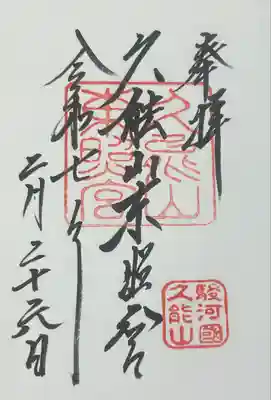 奉拝
久能山東照宮
久能山
東照宮
令和七年
二月二十六日
駿河國
久能山